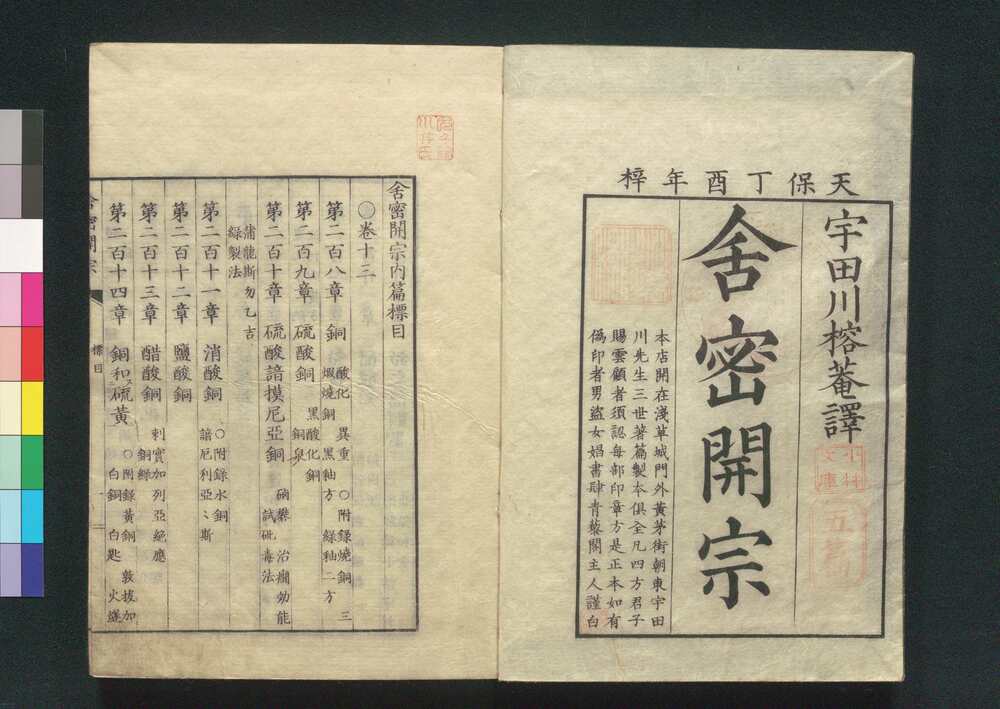 天保丁酉年梓
宇田川榕菴譯
舍密開宗
本店開在淺草城門外黃茅街朝東宇田
川先生三世著篇製本俱全凡四方君子
賜雲顧者須認每部印章方是正本如有
偽印者男盜女娼書肆青藜閣主人謹白
舍密開宗內篇標目
○卷十二
第二百八章 銅 酸化 異重 ○附録燒銅 三
煆燒銅 黑釉方 綠釉二方
第二百九章 硫酸銅 黑酸化銅
銅泉
第二百十章 硫酸諳摸尼亞銅 硇礬 治癇効能
試砒毒法
蒲龍斯勿乙吉
綠製法
第二百十一章 消酸銅 ○附錄水銅
諳厄利亞〻斯
第二百十二章 鹽酸銅
第二百十三章 醋酸銅 刺實加列亞絕應
銅綠
第二百十四章 銅和硫黃 ○附錄黃銅 敦拔加
白銅 白匙 火燧
舍密開宗
標目
一